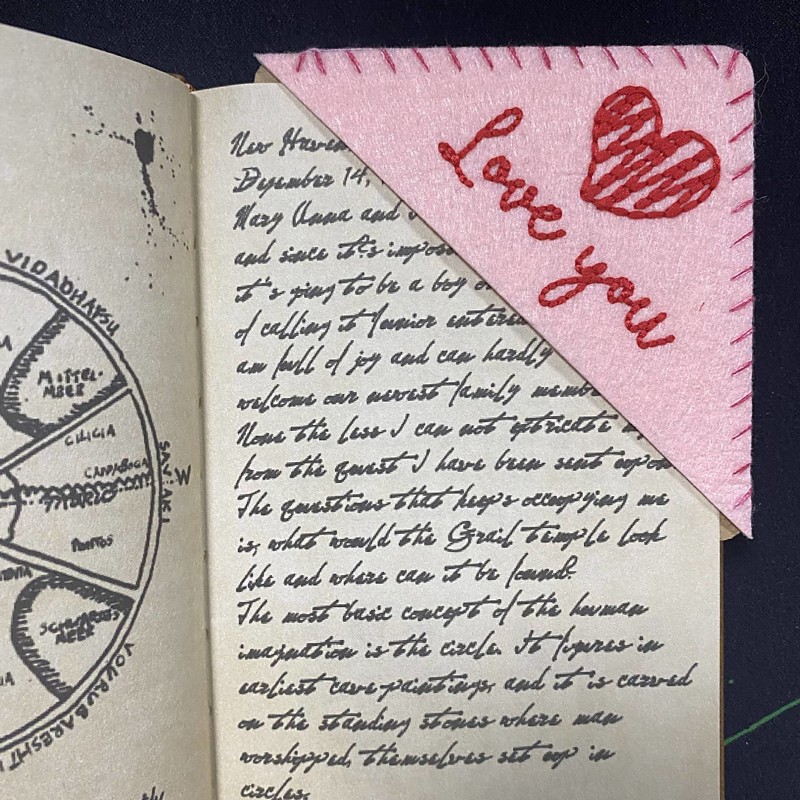 VIDADHAFSU
MITTEL-
MEER
CILICIA
PONTOS
SAVAHI
W
SCHWARZES
MEER
New Haven
Dezember 14,
Mary Anna and
and since it's
it's going to be a boy
of calling it Junior
am full of joy and can hardly
welcome our newest family
None the less I can not extricate
from the quest I have been sent upon
The questions that keeps occupying me
is, what would the Grail temple look
like and where can it be found?
The most basic concept of the human
imagination is the circle. It figures in
earliest cave-paintings, and it is carved
on the standing stones where man
worshipped, themselves set up in
circles.
Love you